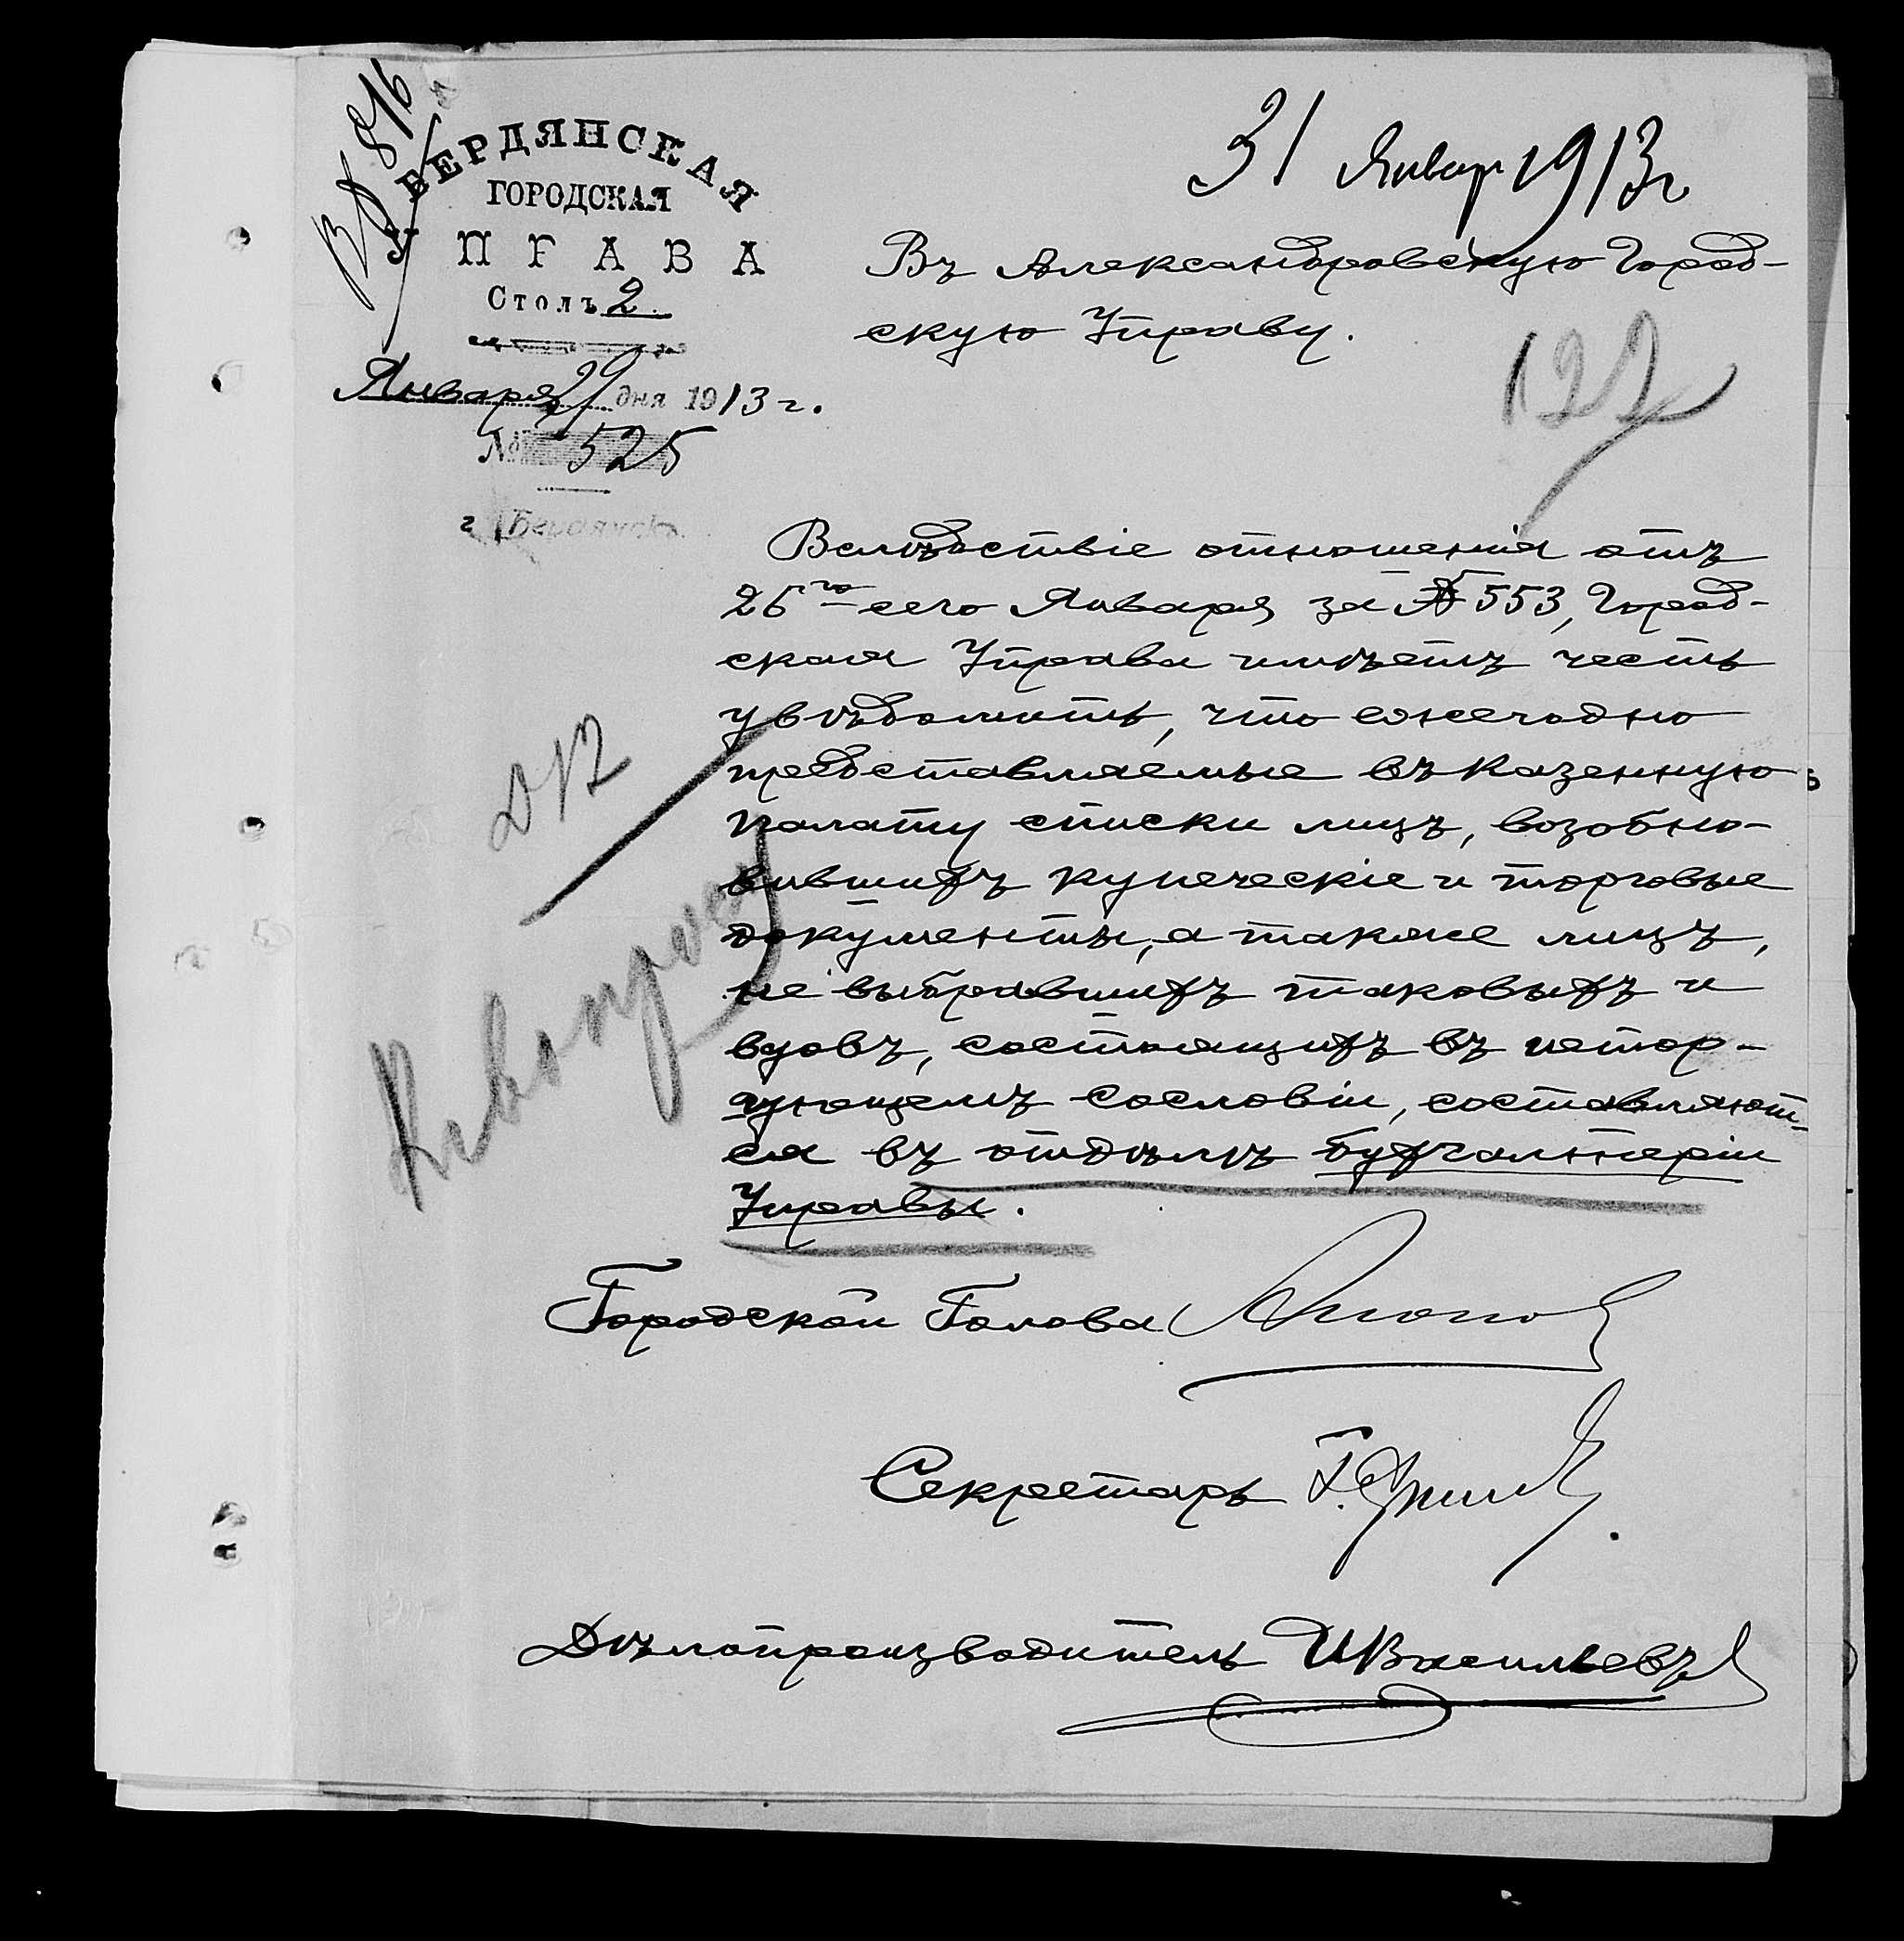 31 Январ 1913 г
БЕРДЯНСКАЯ
ГОРОДСКАЯ
УПРАВА
Столъ 2.
Января 29 дня 1913 г.
№ 525
г. Бердянскъ.
Въ Александровскую Город-
скую Управу.
122
Вслѣдствіе отношенія отъ
25го сего Января за № 553, Город-
ская Управа имѣетъ честь
увѣдомить, что ежегодно
представляемые въ казенную
палату списки лицъ, возобно-
вившихъ купеческіе и торговые
документы, а также лицъ,
не выбравшихъ таковыхъ и
вдовъ, состоящихъ въ нетор-
гующемъ сословіи, составляют-
ся въ отдѣлѣ бухгалтеріи
Управы.
Городской Голова
Секретарь
Дѣлопроизводитель И Васильевъ